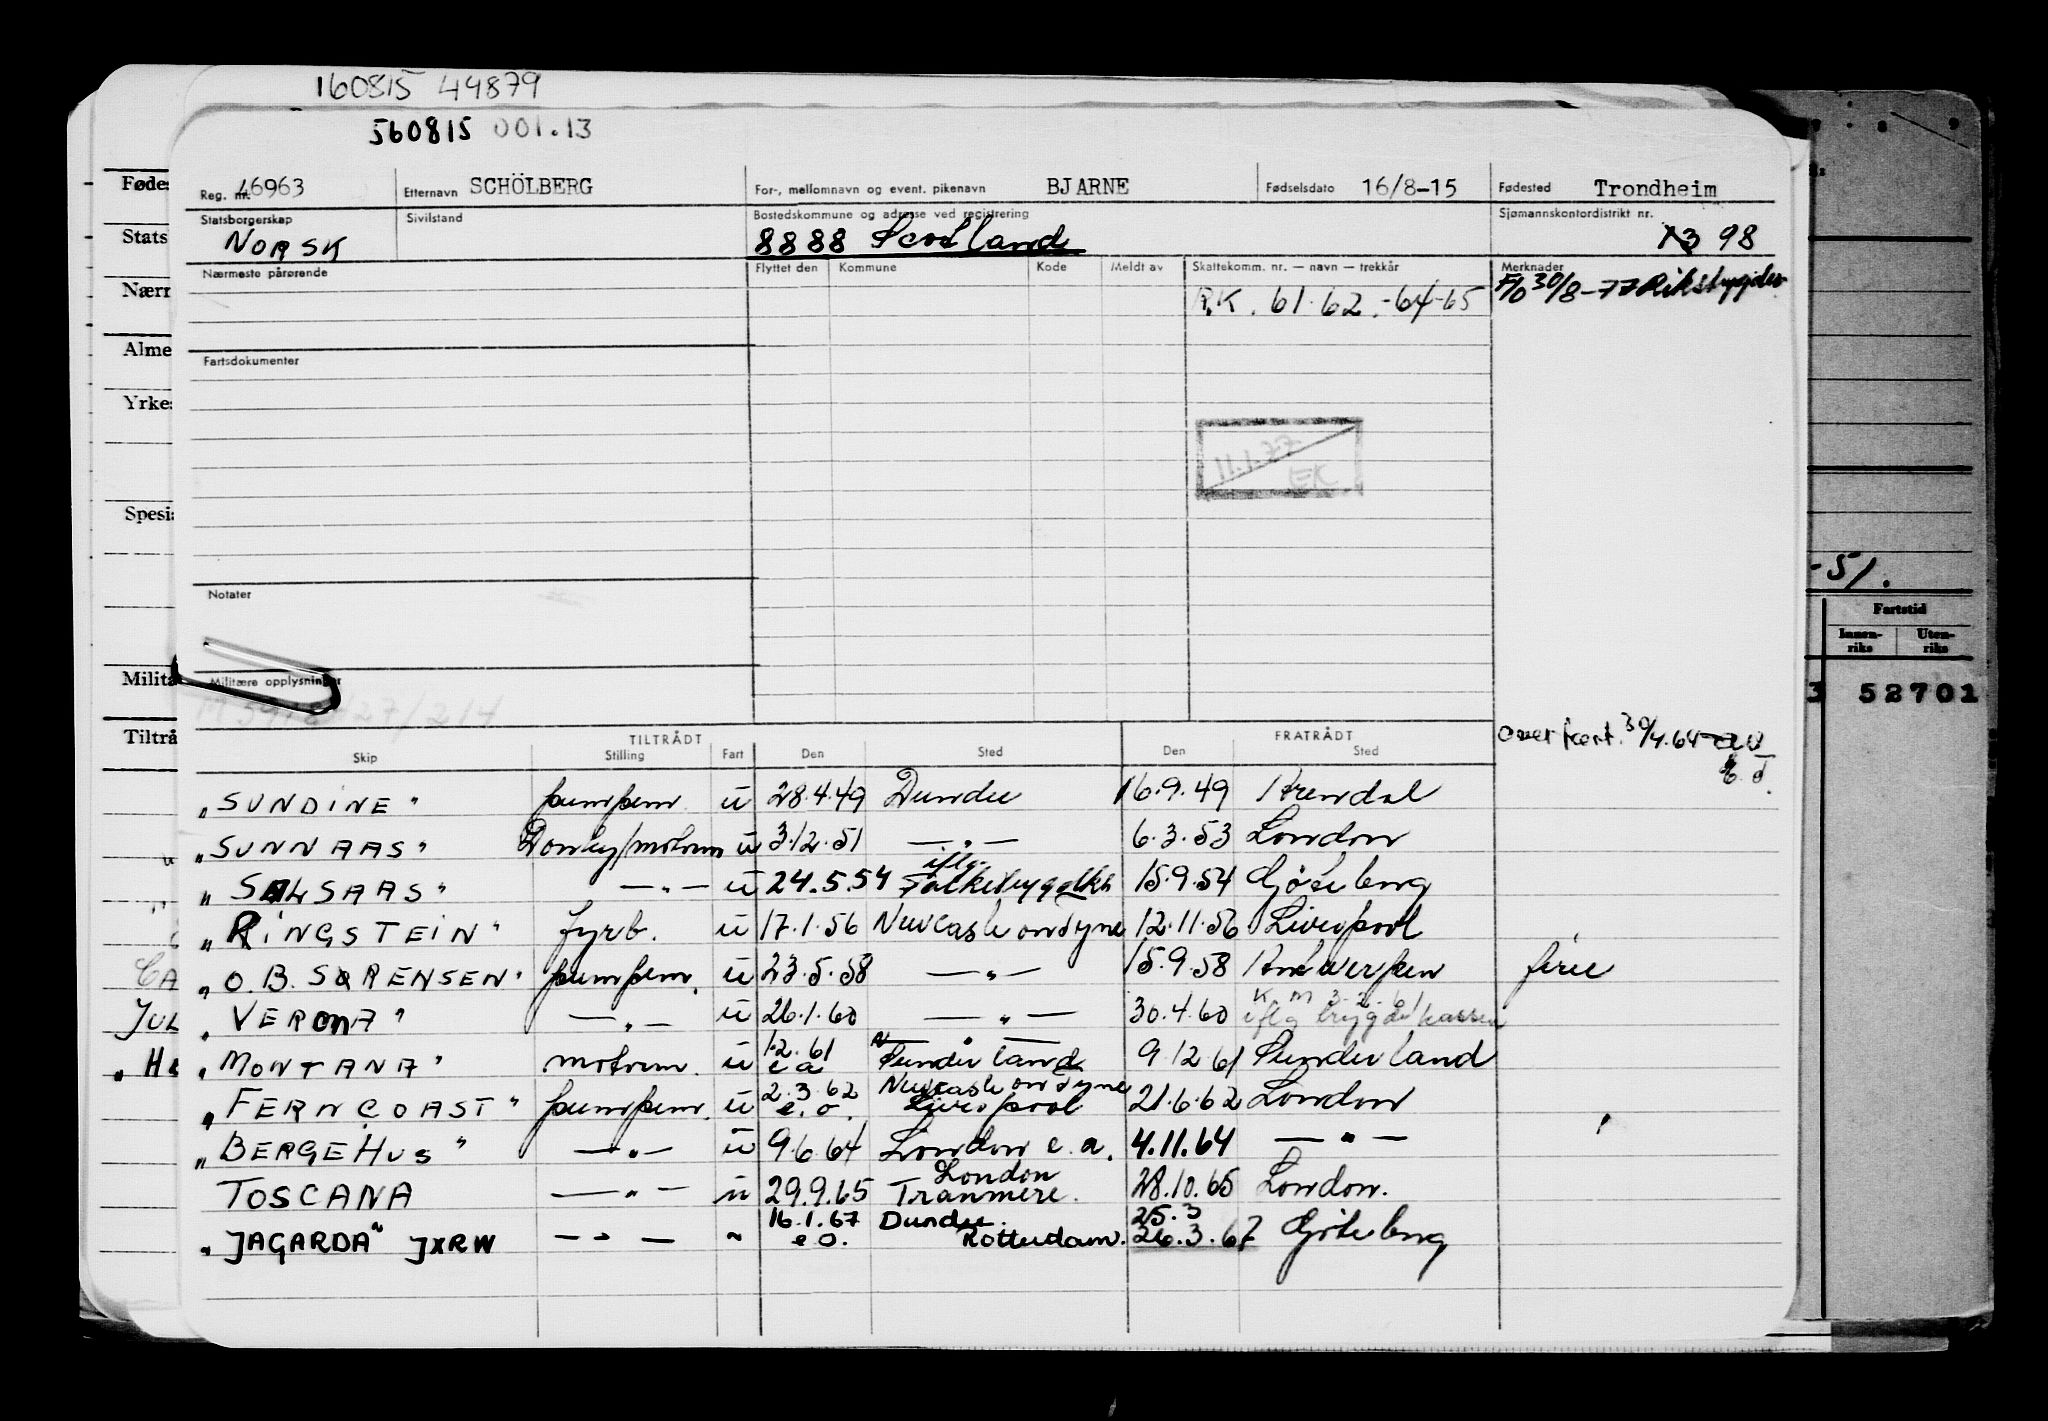 160815 44879
560815 001.13
Reg. nr. 46963 Etternavn SCHÖLBERG For-, mellomnavn og event. pikenavn BJARNE Fødselsdato 16/8-15 Fødested Trondheim
Statsborgerskap NORSK Sivilstand Bostedskommune og adresse ved registrering 8888 Scotland Sjømannskontordistrikt nr. 13 98
Nærmeste pårørende Flyttet den Kommune Kode Meldt av Skattekomm. nr. — navn — trekkår Merknader
P.K. 61-62.-64-65 F/O 30/8-77 Rikstrygdev
Fartsdokumenter
11.1.77
EK
Notater
Militære opplysninger
Føde
Stats
Nærr
Alme
Yrke
Spesi
Milita
Tiltrå
-51.
Fartstid
Innen-riks Uten-riks
3 52701
TILTRÅDT FRATRÅDT
Skip Stilling Fart Den Sted Den Sted
overført. 30/4.64
"SUNDINE" pumpem. u 28.4.49 Dundee 16.9.49 Arendal
"SUNNAAS" Donky/motorm u 3.12.51 — " — 6.3.53 London
"SALSAAS" — " — u 24.5.54 iflg. 15.9.54 Gøteborg
"RINGSTEIN" fyrb. u 17.1.56 Newcastle on Tyne 12.11.56 Liverpool
"O.B. SØRENSEN" pumpem. u 23.5.58 — " — 15.9.58 Antwerpen ferie
"VERONA" — " — u 26.1.60 — " — 30.4.60 iflg trygdekassen
"MONTANA" motorm. u 1.2.61 e a Sunderland 9.12.61 Sunderland
"FERNCOAST" pumpem. u 2.3.62 e.o. Newcastle on Tyne Liverpool 21.6.62 London
"BERGEHUS" — " — u 9.6.64 London e.a. 4.11.64 — " —
TOSCANA — " — u 29.9.65 London Tranmere. 28.10.65 London.
"JAGARDA" JXRW — " — " 16.1.67 e.o. Dundee. Rotterdam. 25.3 26.3.67 Gøteborg